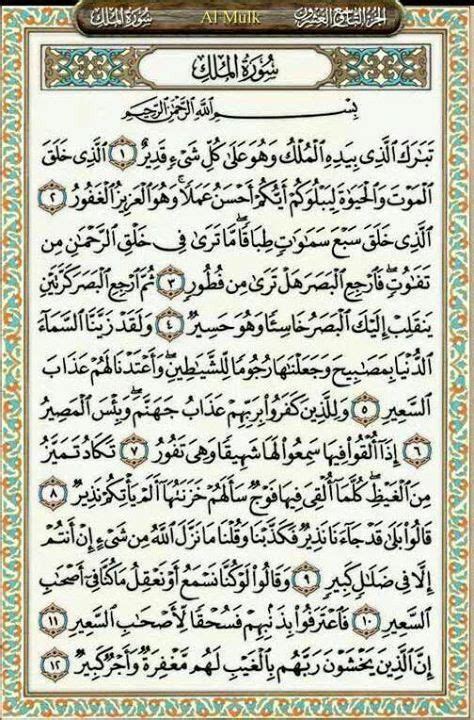 سُورَةُ المُلْكِ Al Mulk الجُزءُ التَّاسِعُ وَالعِشْرُونَ
سُورَةُ المُلْكِ
بِسْمِ اللَّهِ الرَّحْمَٰنِ الرَّحِيمِ
تَبَٰرَكَ الَّذِي بِيَدِهِ الْمُلْكُ وَهُوَ عَلَىٰ كُلِّ شَيْءٍ قَدِيرٌ ١ الَّذِي خَلَقَ
الْمَوْتَ وَالْحَيَوٰةَ لِيَبْلُوَكُمْ أَيُّكُمْ أَحْسَنُ عَمَلًا ۚ وَهُوَ الْعَزِيزُ الْغَفُورُ ٢
الَّذِي خَلَقَ سَبْعَ سَمَٰوَٰتٍ طِبَاقًا ۖ مَّا تَرَىٰ فِي خَلْقِ الرَّحْمَٰنِ مِن
تَفَٰوُتٍ ۖ فَارْجِعِ الْبَصَرَ هَلْ تَرَىٰ مِن فُطُورٍ ٣ ثُمَّ ارْجِعِ الْبَصَرَ كَرَّتَيْنِ
يَنقَلِبْ إِلَيْكَ الْبَصَرُ خَاسِئًا وَهُوَ حَسِيرٌ ٤ وَلَقَدْ زَيَّنَّا السَّمَآءَ
الدُّنْيَا بِمَصَٰبِيحَ وَجَعَلْنَٰهَا رُجُومًا لِّلشَّيَٰطِينِ ۖ وَأَعْتَدْنَا لَهُمْ عَذَابَ
السَّعِيرِ ٥ وَلِلَّذِينَ كَفَرُوا۟ بِرَبِّهِمْ عَذَابُ جَهَنَّمَ ۖ وَبِئْسَ الْمَصِيرُ
٦ إِذَآ أُلْقُوا۟ فِيهَا سَمِعُوا۟ لَهَا شَهِيقًا وَهِيَ تَفُورُ ٧ تَكَادُ تَمَيَّزُ
مِنَ الْغَيْظِ ۖ كُلَّمَآ أُلْقِيَ فِيهَا فَوْجٌ سَأَلَهُمْ خَزَنَتُهَآ أَلَمْ يَأْتِكُمْ نَذِيرٌ ٨
قَالُوا۟ بَلَىٰ قَدْ جَآءَنَا نَذِيرٌ فَكَذَّبْنَا وَقُلْنَا مَا نَزَّلَ اللَّهُ مِن شَيْءٍ إِنْ أَنتُمْ
إِلَّا فِي ضَلَٰلٍ كَبِيرٍ ٩ وَقَالُوا۟ لَوْ كُنَّا نَسْمَعُ أَوْ نَعْقِلُ مَا كُنَّا فِيٓ أَصْحَٰبِ
السَّعِيرِ ١٠ فَاعْتَرَفُوا۟ بِذَنۢبِهِمْ فَسُحْقًا لِّأَصْحَٰبِ السَّعِيرِ ١١
إِنَّ الَّذِينَ يَخْشَوْنَ رَبَّهُم بِالْغَيْبِ لَهُم مَّغْفِرَةٌ وَأَجْرٌ كَبِيرٌ ١٢